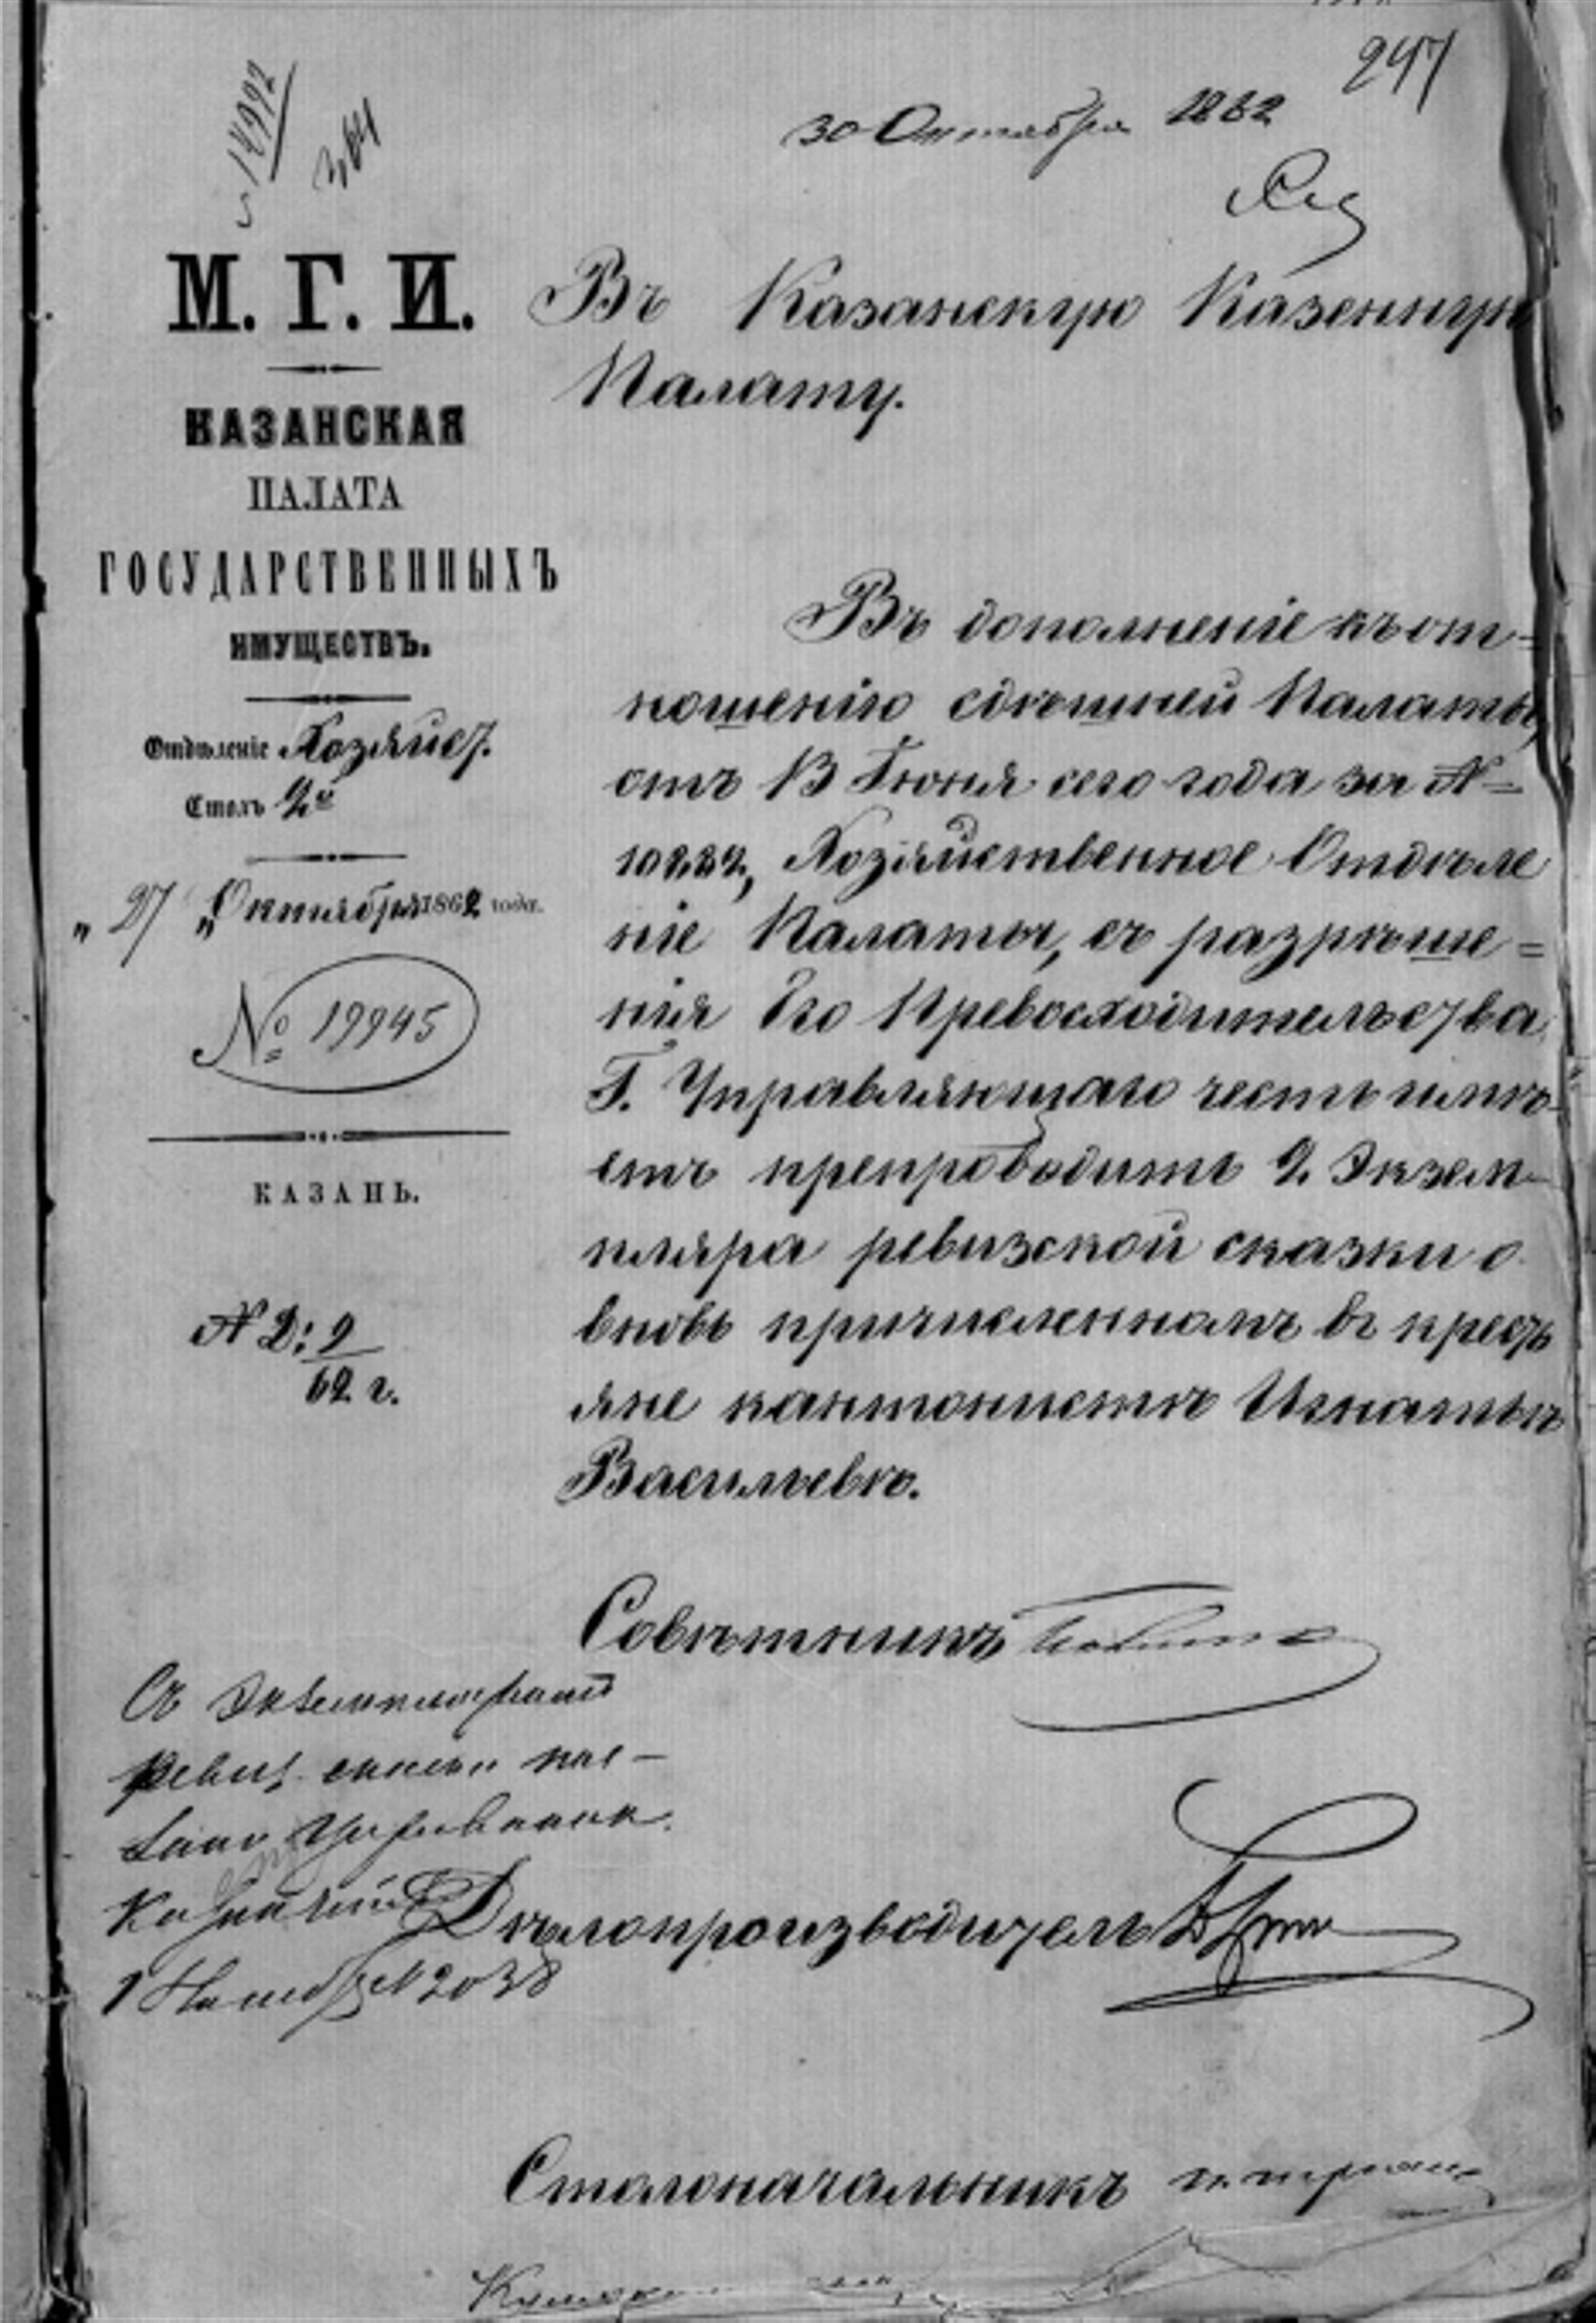 247
№ 14992
364
30 Октября 1862
М. Г. И.
КАЗАНСКАЯ
ПАЛАТА
ГОСУДАРСТВЕННЫХЪ
ИМУЩЕСТВЪ.
Отдѣленіе Хозяйст.
Столъ 2й
„27„ Октября 1862 года.
№ 19945
КАЗАНЬ.
№ Д: 9
62 г.
Въ Казанскую Казенную
Палату.
Въ дополненіе къ от=
ношенію здѣшней Палаты,
отъ 13 Іюня сего года за №
10232, Хозяйственное Отдѣле
ніе Палаты, съ разрѣше=
нія Его Превосходительства
Г. Управляющаго честь имѣ-
етъ препроводить 2 экзем-
пляра ревизской сказки о
вновь причисленномъ въ крест
яне кантонистѣ Игнатьѣ
Васильевѣ.
Совѣтникъ
Съ экземпляромъ
ревиз. сказки
1 Нояб № 2038
Дѣлопроизводитель
Столоначальникъ